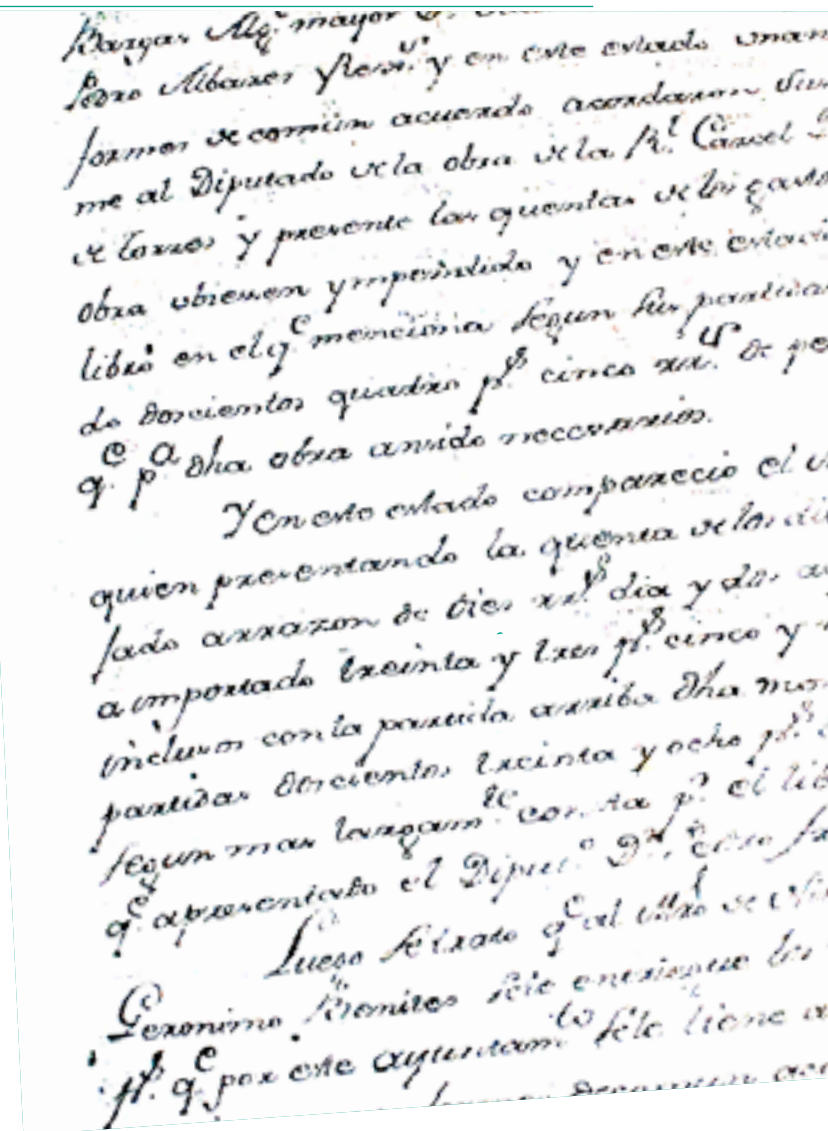 Bargas Alg.e mayor
Pedro Albares y Rexr.s y en este estado unan
formes de comun acuerdo acordaron
me al Diputado de la obra de la R.l Carcel
de torres y presente las quentas de los gasto
obra ubiesen ympendido y en este estad
libro en el q.e menciona segun sus particu
do dorcientos quadro p.s cinco rr.s de pe
q.e p.a dha obra ansido necesarios.
Y en este estado comparecio el
quien presentando la quenta de los di
sado arrazon de dies rr.s dia y dos
a importado treinta y tres p.s cinco y
inclusos con la partida arriba dha
partidas dorcientos treinta y ocho p.s
segun mas largam.te consta p.r el lib
q.e apresentado el Diput.o
Luego se trato q.e al Mtro de
Geronimo Benites sele entriegue los
p.s q.e por este ayuntam.to sele tiene a